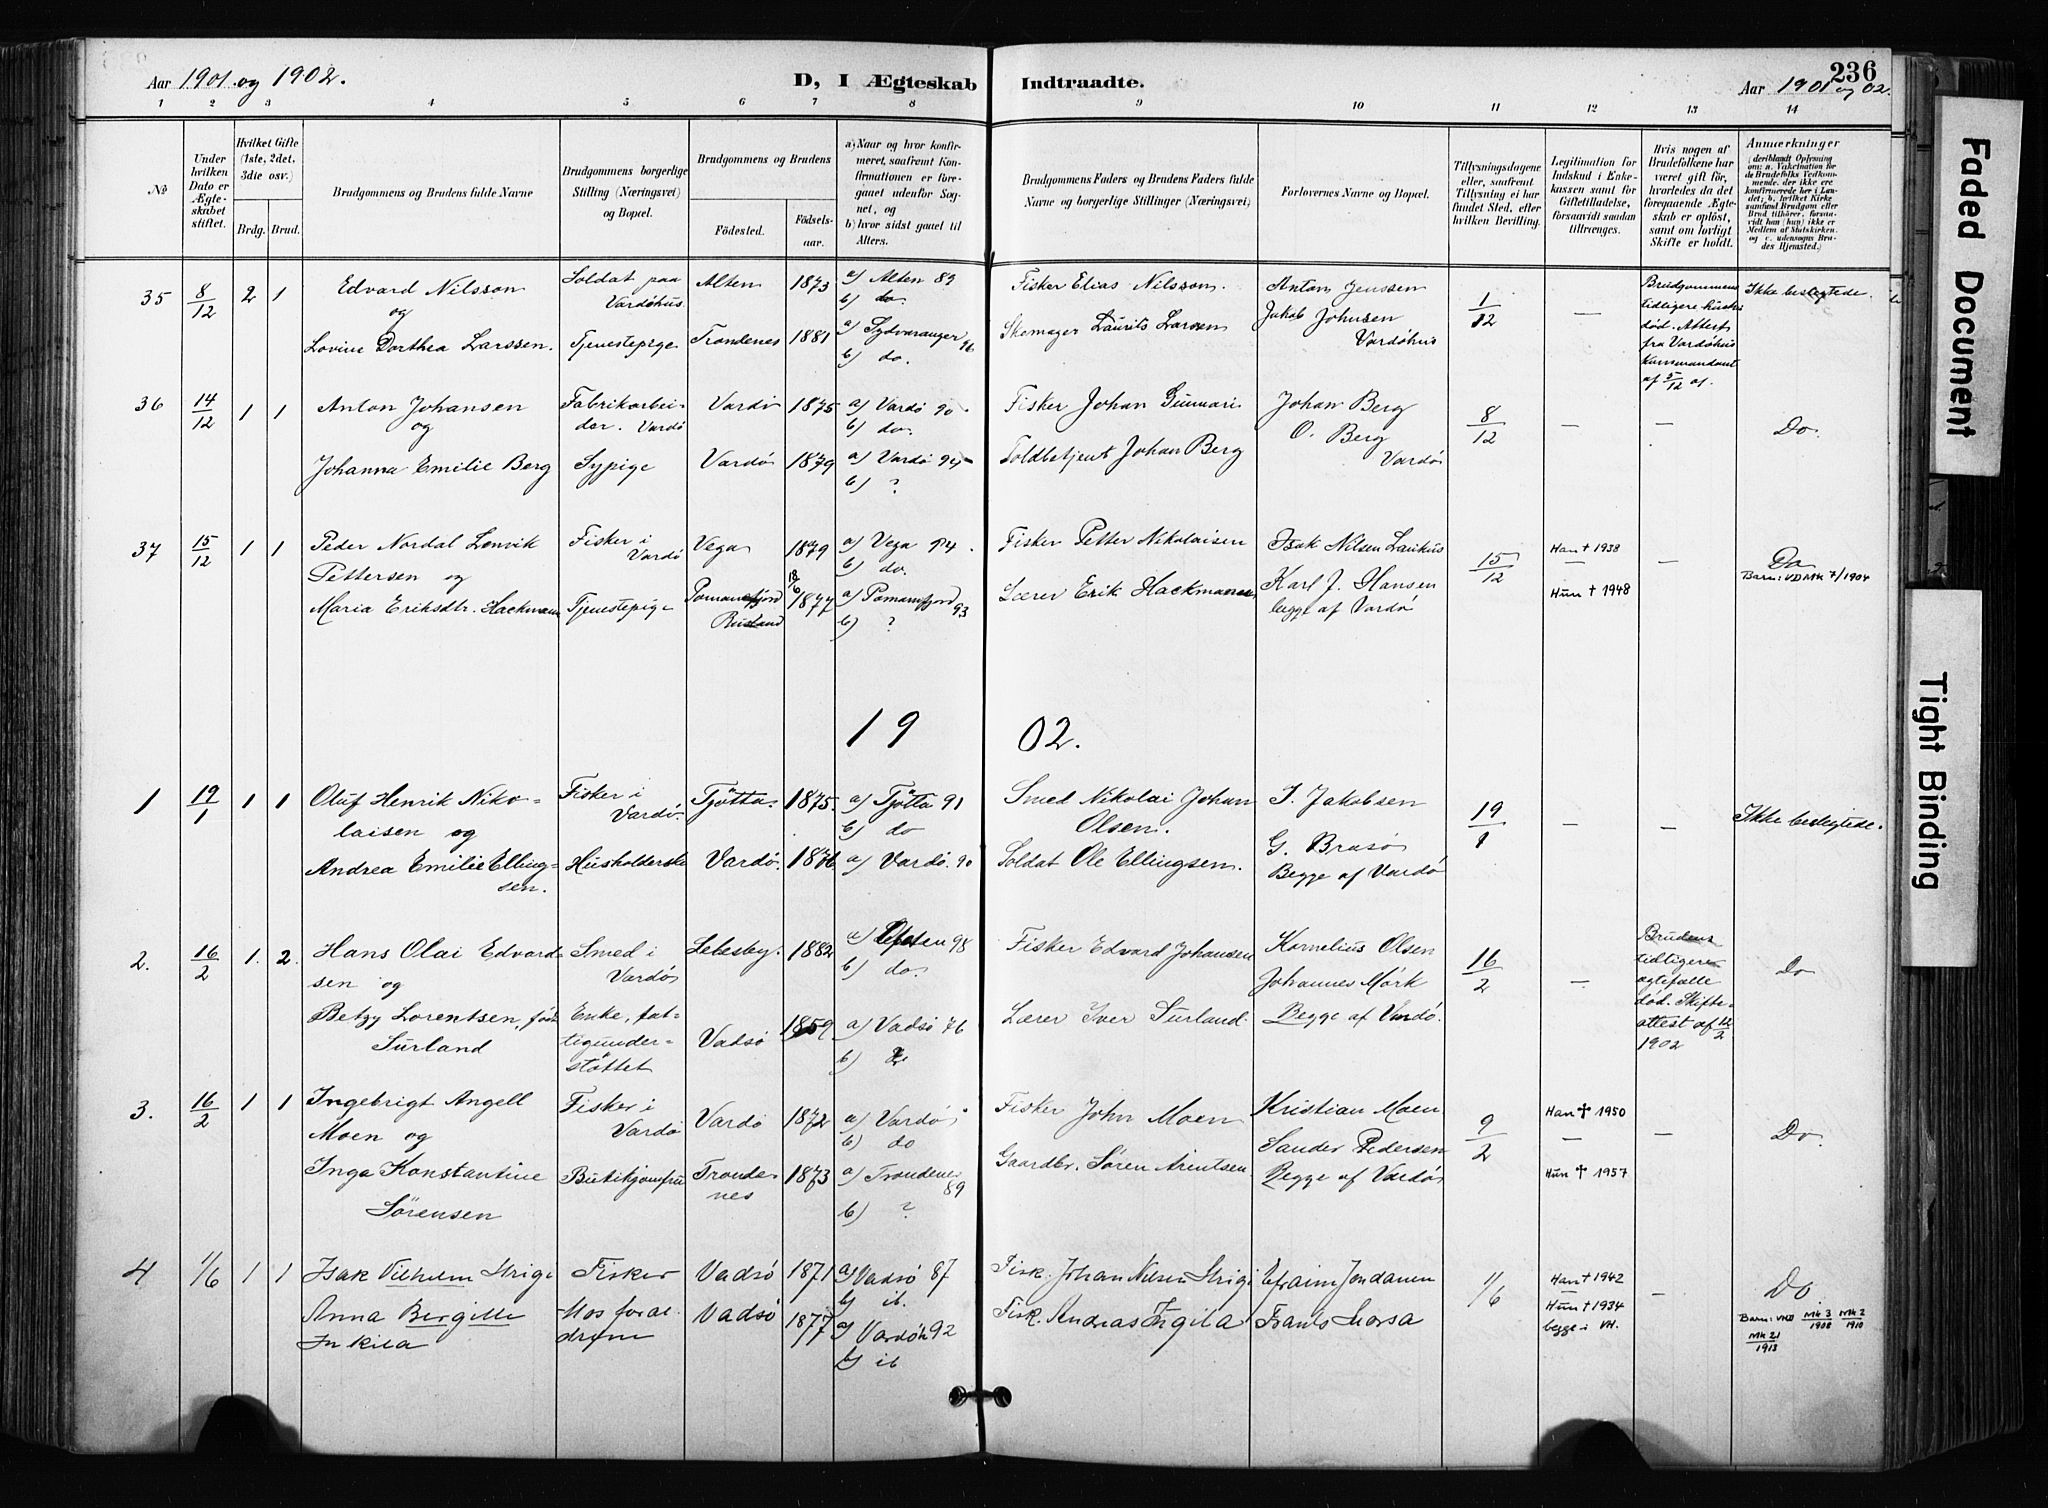 Aar 1901 og 1902.
D, I Ægteskab Indtraadte.
Aar 1901 og 02.
236
1 2 3 4 5 6 7 8 9 10 11 12 13 14
No
Under hvilken Dato er Ægteskabet stiftet.
Hvilket Gifte (1ste, 2det, 3die osv.)
Brdg. Brud.
Brudgommens og Brudens fulde Navne
Brudgommens borgerlige Stilling (Næringsvei) og Bopæl.
Brudgommens og Brudens
Födested. Födselsaar.
a) Naar og hvor konfirmeret, saafremt Konfirmationen er foregaaet udenfor Sognet, og
b) hvor sidst gaaet til Alters.
Brudgommens Faders og Brudens Faders fulde Navne og borgerlige Stillinger (Næringsvei)
Forlovernes Navne og Bopæl.
Tillysningsdagene eller, saafremt Tillysning ei har fundet Sted, efter hvilken Bevilling.
Legitimation for Indskud i Enkekassen samt for Giftetilladelse, forsaavidt saadan tiltrænges.
Hvis nogen af Brudefolkene har været gift för, hvorledes da det foregaaende Ægteskab er oplöst, samt om lovligt Skifte er holdt.
Anmærkninger
35 8/12 2 1 Edvard Nilsson Soldat paa Alten 1873 a) Alten 89 Fisker Elias Nilsson. Anton Jenssen 1/12 — Brudgommens Ikke beslegtede.
og Vardöhus. b) do. Jakob Johnsen tidligere
Lovine Dorthea Larssen. Tjenestepige Trondenes 1881 a) Sydvaranger 96 Skomager Laurits Larsen Vardöhus död. Attest
b) do. fra Vardöhus
Kommandant
af 5/12 01.
36 14/12 1 1 Anton Johansen Fabrikarbei- Vardö 1875 a) Vardö 90 Fisker Johan Johan Berg 8/12 — — Do.
og der. Vardö b) do. O. Berg
Johanna Emilie Berg Sypige Vardö 1879 a) Vardö 94 Toldbetjent Johan Berg Vardö
b) ?
37 15/12 1 1 Peder Nordal Lenvik Fisker i Vega 1879 a) Vega 94. Fisker Petter Nikolaisen Isak Nilsen 15/12 Han † 1938 — Do
Pettersen og Vardö b) do. Barn: VDMK 7/1904
Maria Eriksdtr. Hackmann Tjenestepige 18/6 1877 a) 93 Lærer Erik Hackmann Karl J. Hansen Hun † 1948
Rusland b) ? begge af Vardö
19 02.
1 19/1 1 1 Oluf Henrik Niko- Fisker i Tjötta 1875. a) Tjötta 91 Smed Nikolai Johan J. Jakobsen 19/1 — — Ikke beslegtede.
laisen og Vardö. b) do Olsen.
Andrea Emilie Elling- Vardö. 1876 a) Vardö. 90 Soldat Ole Ellingsen. G.
sen. Begge af Vardö
2. 16/2 1. 2. Hans Olai Edvard- Smed i Lebesby. 1882 a) 98 Fisker Edvard Johansen Kornelius Olsen 16/2 — Brudens Do
sen og Vardö b) do. Johannes Mörk tidligere
Betzy Lorentsen, född Enke, fat- Vadsö 1859 a) Vadsö 76 Lærer Iver Surland. Begge af Vardö. ægtefælle
Surland tigunder- b) död. Skifte-
stöttet attest af 12/2
1902
3. 16/2 1 1 Ingebrigt Angell Fisker i Vardö 1872 a) Vardö Fisker John Moen Kristian Moen 9/2 Han † 1950 — Do.
Moen og Vardö b) do Sander Pedersen —
Inga Konstantine Butikjomfru Tronde- 1873 a) Trondenes 89 Gaardbr. Sören Arentsen Begge af Vardö Hun † 1957
Sörensen nes b) ?
4 1/6 1 1 Isak Vilhelm Fisker Vadsö 1871 a) Vadsö 87 Fisk. Johan Nilsen Efraim 1/6 Han † 1942 — Do
b) ib. Hun † 1934
Anna Bergitte Hos foræl- Vadsö 1877 a) Vardö 92 Fisk. Andreas Frants begge i VH.
Inkila drene b) ib Barn: VHD MK 3/1908 MK 2/1910
MK 21/1913
Faded Document
Tight Binding